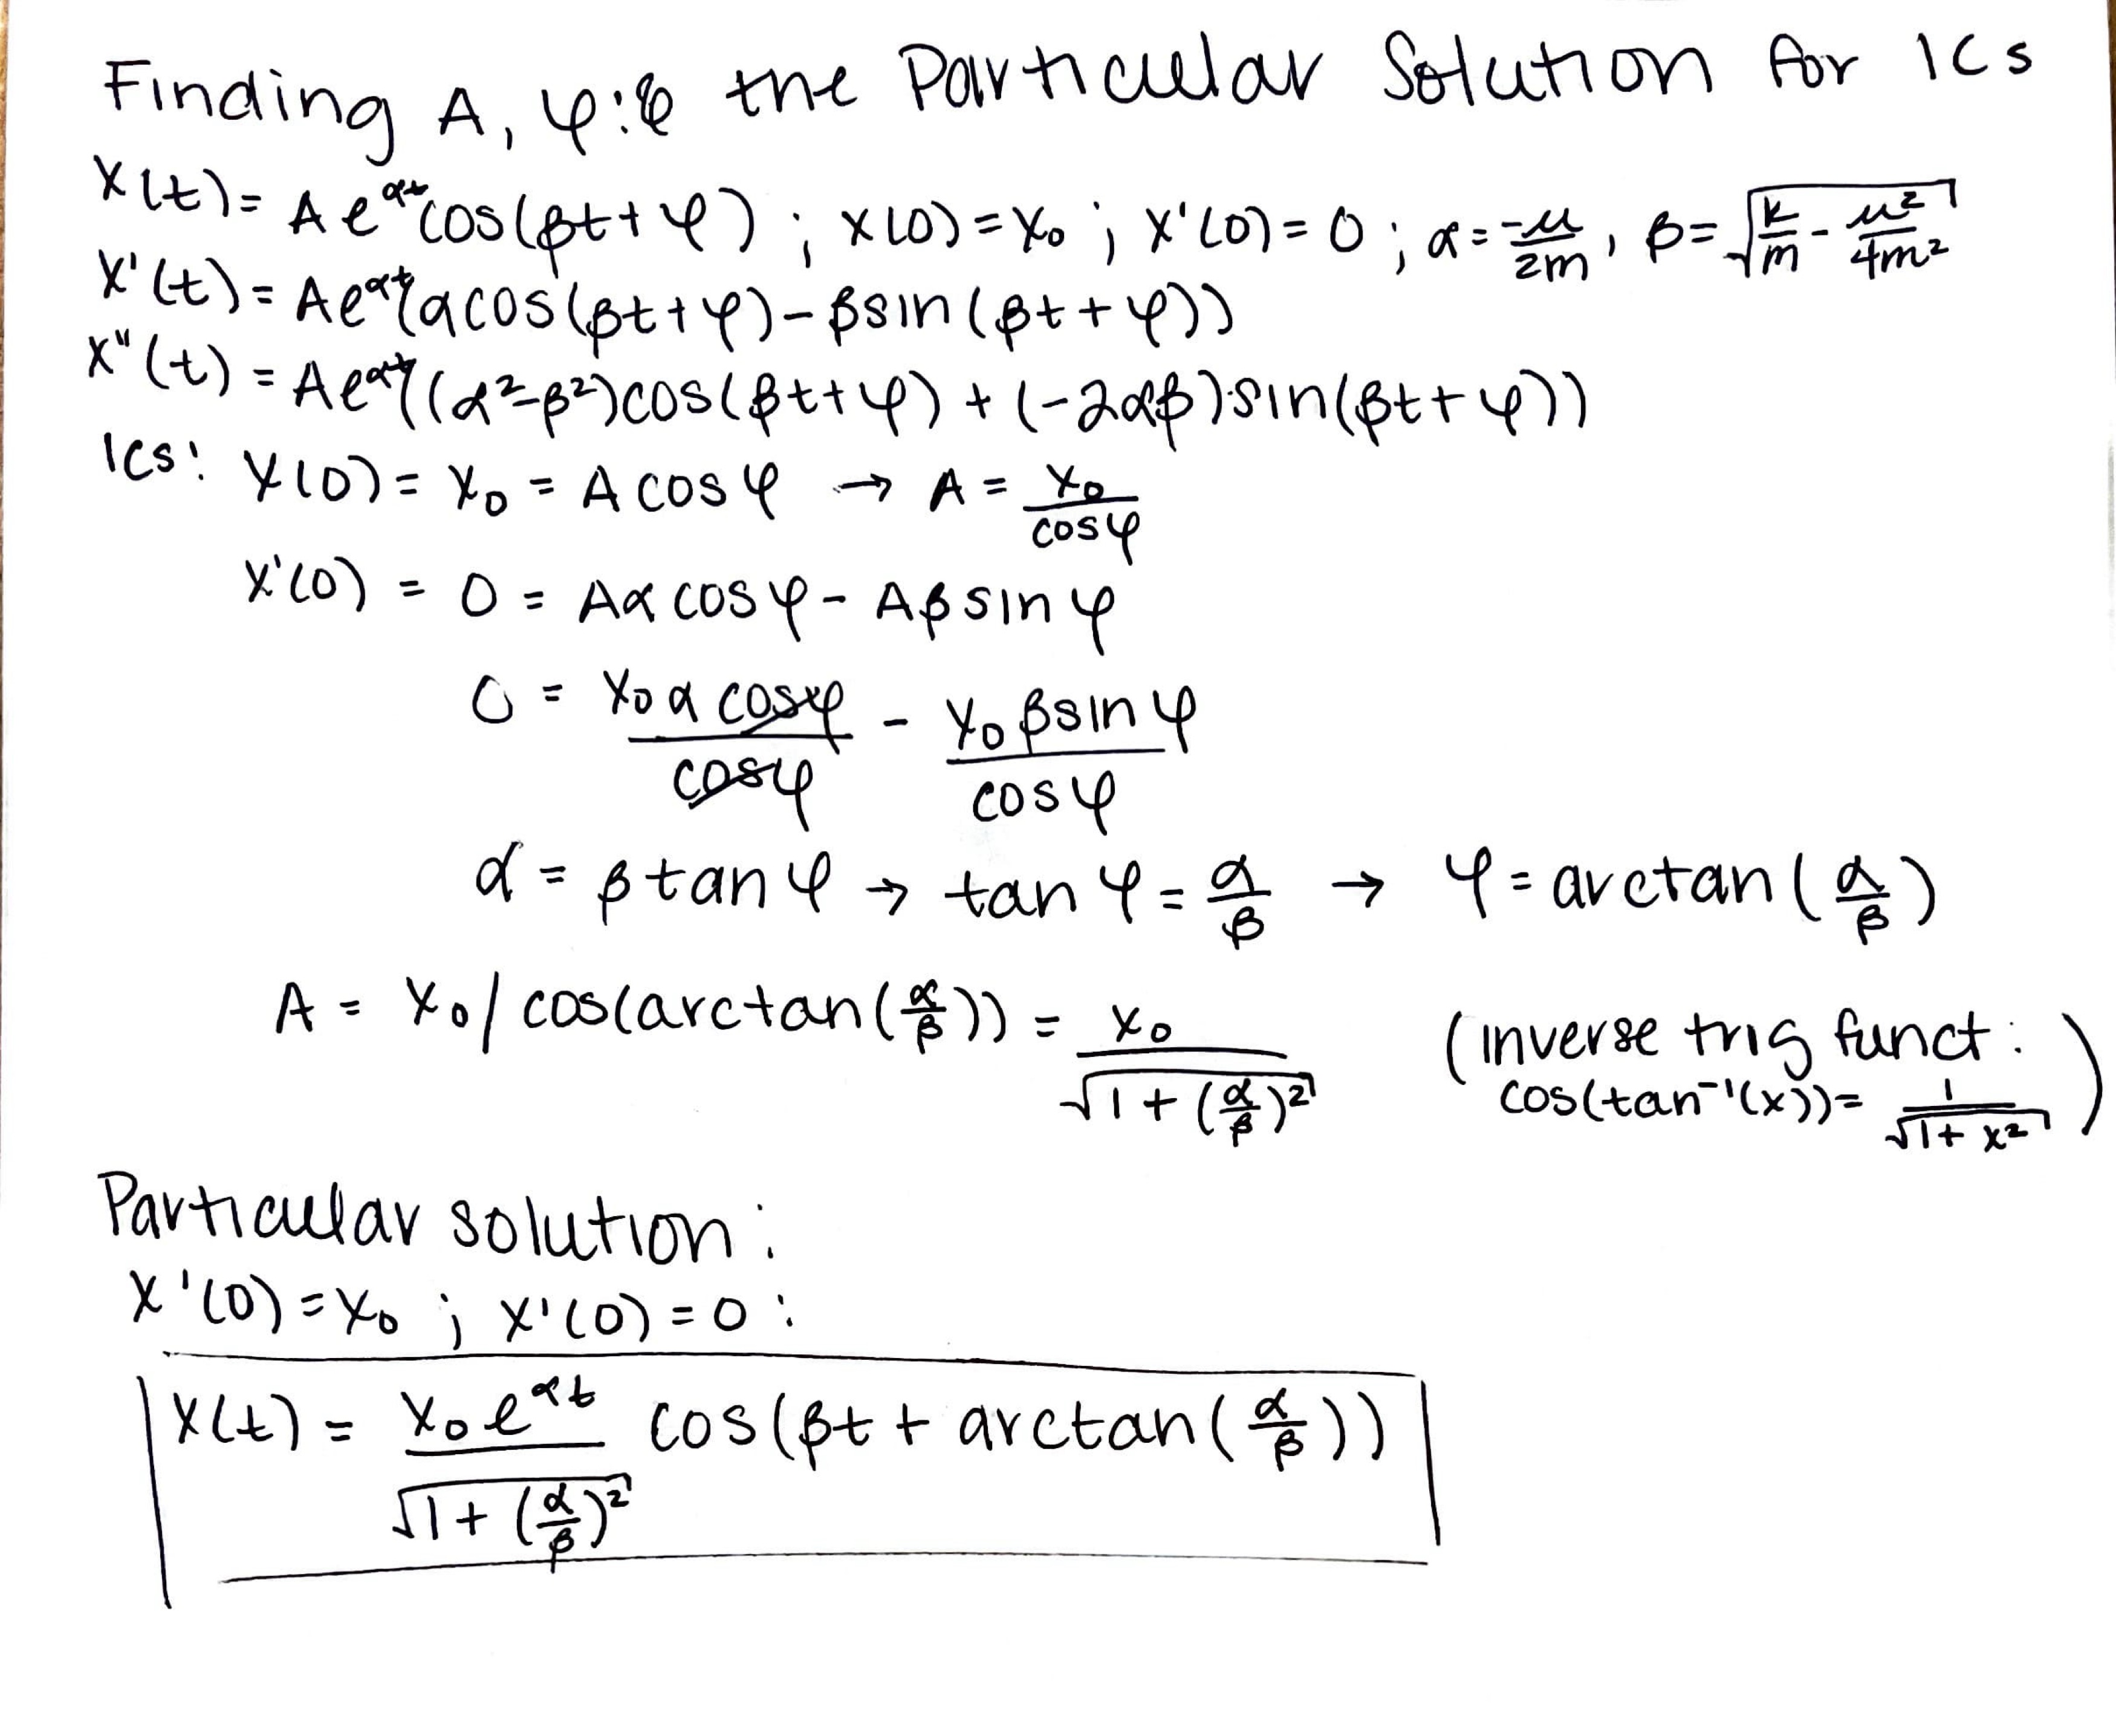 Finding A, φ: & the Particular Solution for ICs
x(t) = A e^{αt} cos(βt + φ) ; x(0) = x₀ ; x'(0) = 0 ; α = -μ/2m , β = √(k/m - μ²/4m²)
x'(t) = A e^{αt}(α cos(βt + φ) - β sin(βt + φ))
x''(t) = A e^{αt}((α² - β²) cos(βt + φ) + (-2αβ) sin(βt + φ))
ICs: x(0) = x₀ = A cos φ → A = x₀/cos φ
x'(0) = 0 = Aα cos φ - Aβ sin φ
0 = x₀ α cos φ/cos φ - x₀ β sin φ/cos φ
α = β tan φ → tan φ = α/β → φ = arctan(α/β)
A = x₀/cos(arctan(α/β)) = x₀/√(1 + (α/β)²)
(inverse trig funct:
cos(tan⁻¹(x)) = 1/√(1 + x²))
Particular solution:
x'(0) = x₀ ; x'(0) = 0 :
x(t) = x₀ e^{αt}/√(1 + (α/β)²) cos(βt + arctan(α/β))